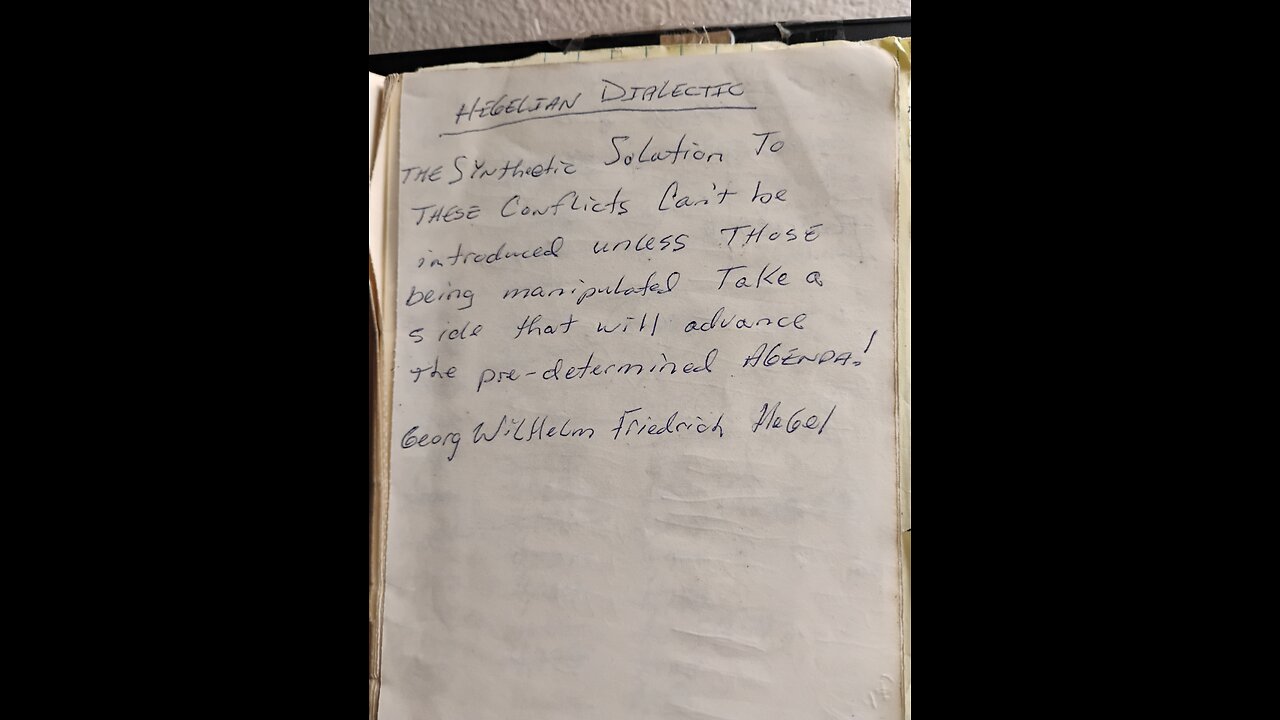 HEGELIAN DIALECTIC
THE SYnthetic Solution To
THESE Conflicts Can't be
introduced unless THOSE
being manipulated Take a
side that will advance
the pre-determined AGENDA!
Georg WilHelm Friedrich HeGel